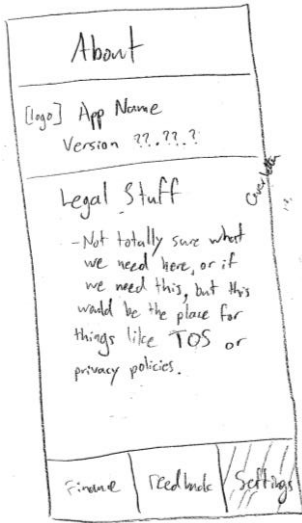 About
[logo] App Name
Version ??.??.?
Legal Stuff
-Not totally sure what
we need here, or if
we need this, but this
would be the place for
things like TOS or
privacy policies.
Finance
Feedback
Settings